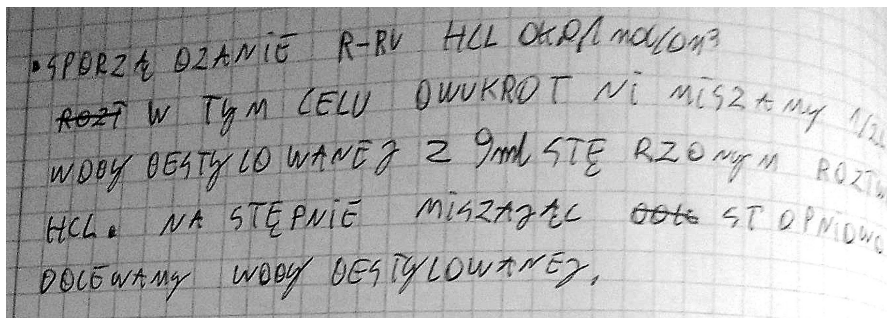 • SPORZĄDZANIE R-RU HCL OK 0,1 mol/DM³
W TYM CELU DWUKROTNI MISZAMY 1/2L
WODY DESTYLOWANEJ Z 9ml STĘRZONYM ROZTW
HCL. NASTĘPNIE MISZAJĄC STOPNIOWO
DOLEWAMY WODY DESTYLOWANEJ,